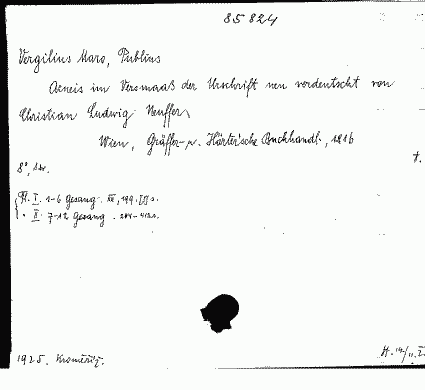 85824
Vergilius Maro, Publius
Aeneis im Versmaaß der Urschrift neu verdeutscht von
Christian Ludwig Neuffer
Wien, Gräffer- u. Härter'sche Buchhandl., 1816
t.
8°, 1 sv.
I. 1-6 Gesang. III, 199, s.
II. 7-12 Gesang. 204-412 s.
1925. Kroměříž.
H. 14/11.